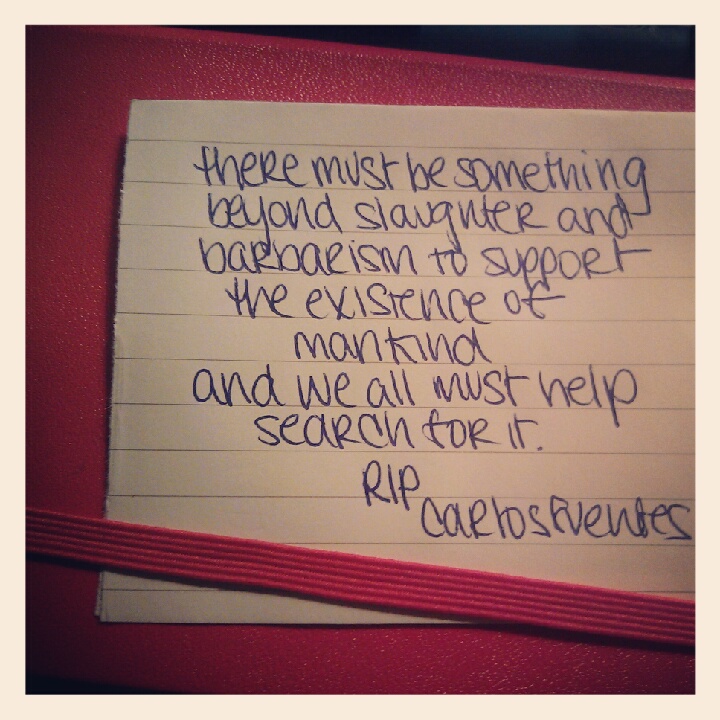 there must be something
beyond slaughter and
barbarism to support
the existence of
mankind
and we all must help
search for it.
RIP
Carlos Fuentes